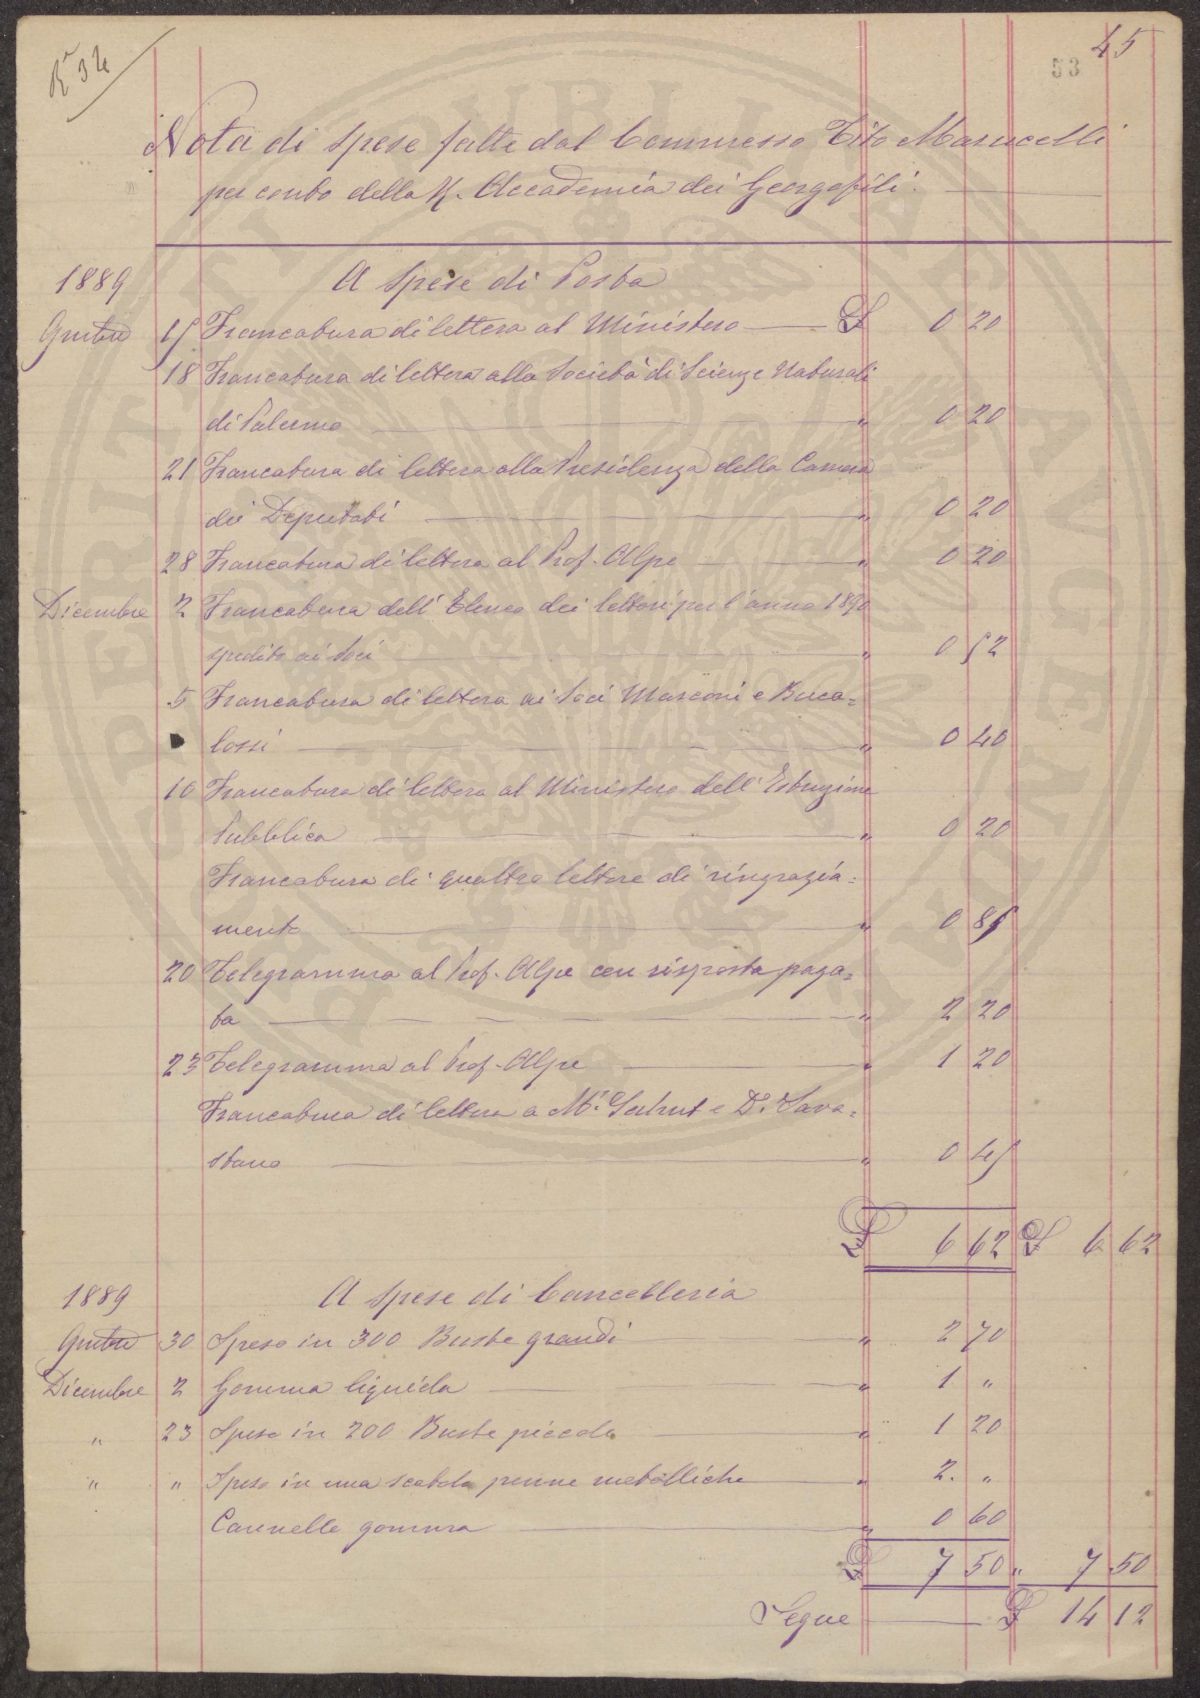 45
53
R 32
Nota di Spese fatte dal Commesso Tito Marucelli
per conto della R. Accademia dei Georgofili.
1889 A Spese di Posta
15 Francatura di lettera al Ministero £ 0 20
18 Francatura di lettera alla Società di Scienze Naturali
di Palermo " 0 20
21 Francatura di lettera alla Presidenza della Camera
dei Deputati " 0 20
28 Francatura di lettera al Prof. Alpe " 0 20
Dicembre 2 Francatura dell'Elenco dei lettori per l'anno 1890
spedito ai Soci " 0 52
5 Francatura di lettera ai Soci Marconi e Buca=
lossi " 0 40
10 Francatura di lettera al Ministero dell'Istruzione
Pubblica " 0 20
Francatura di quattro lettere di ringrazia=
mento " 0 85
20 Telegramma al Prof. Alpe con risposta paga=
ta " 2 20
23 Telegramma al Prof. Alpe " 1 20
Francatura di lettera a Mr. e Dr. Sava=
stano " 0 45
£ 6 62 £ 6 62
1889 A Spese di Cancelleria
30 Speso in 300 Buste grandi " 2 70
Dicembre 2 Gomma liquida " 1 "
" 23 Speso in 200 Buste piccole " 1 20
" " Speso in una scatola penne metalliche " 2. "
Cannelle gomma " 0 60
£ 7 50 " 7 50
Segue £ 14 12